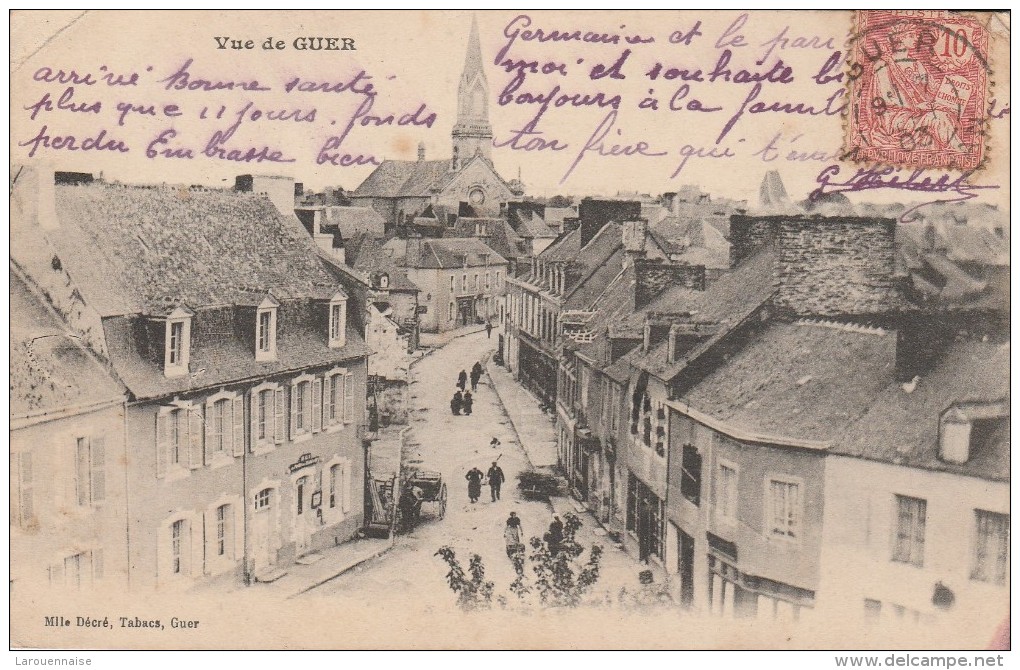 Vue de GUER
arrivé Bonne santé
plus que 11 jours. fonds
perdu Embrasse bien
Germaine et le
moi et souhaite
toujours à la famille
ton frère qui t'
G Hébert
POSTES
10
GUER
03
REPUBLIQUE FRANÇAISE
Mlle Décré, Tabacs, Guer
Larouennaise
www.delcampe.net